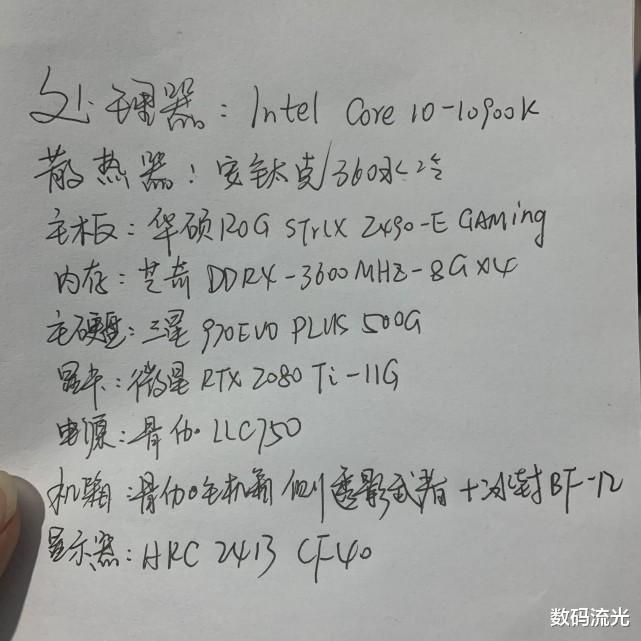 处理器：Intel Core 10-10900K
散热器：安钛克/360水冷
主板：华硕ROG STrIX Z490-E GAMing
内存：芝奇 DDR4-3600MHZ-8G×4
主硬盘：三星 970EVO PLUS 500G
显卡：微星 RTX 2080 Ti-11G
电源：骨伽 LLC750
机箱：骨伽 机箱 侧透影武者 +冰封BF-12
显示器：HKC 2413 CF40
数码流光